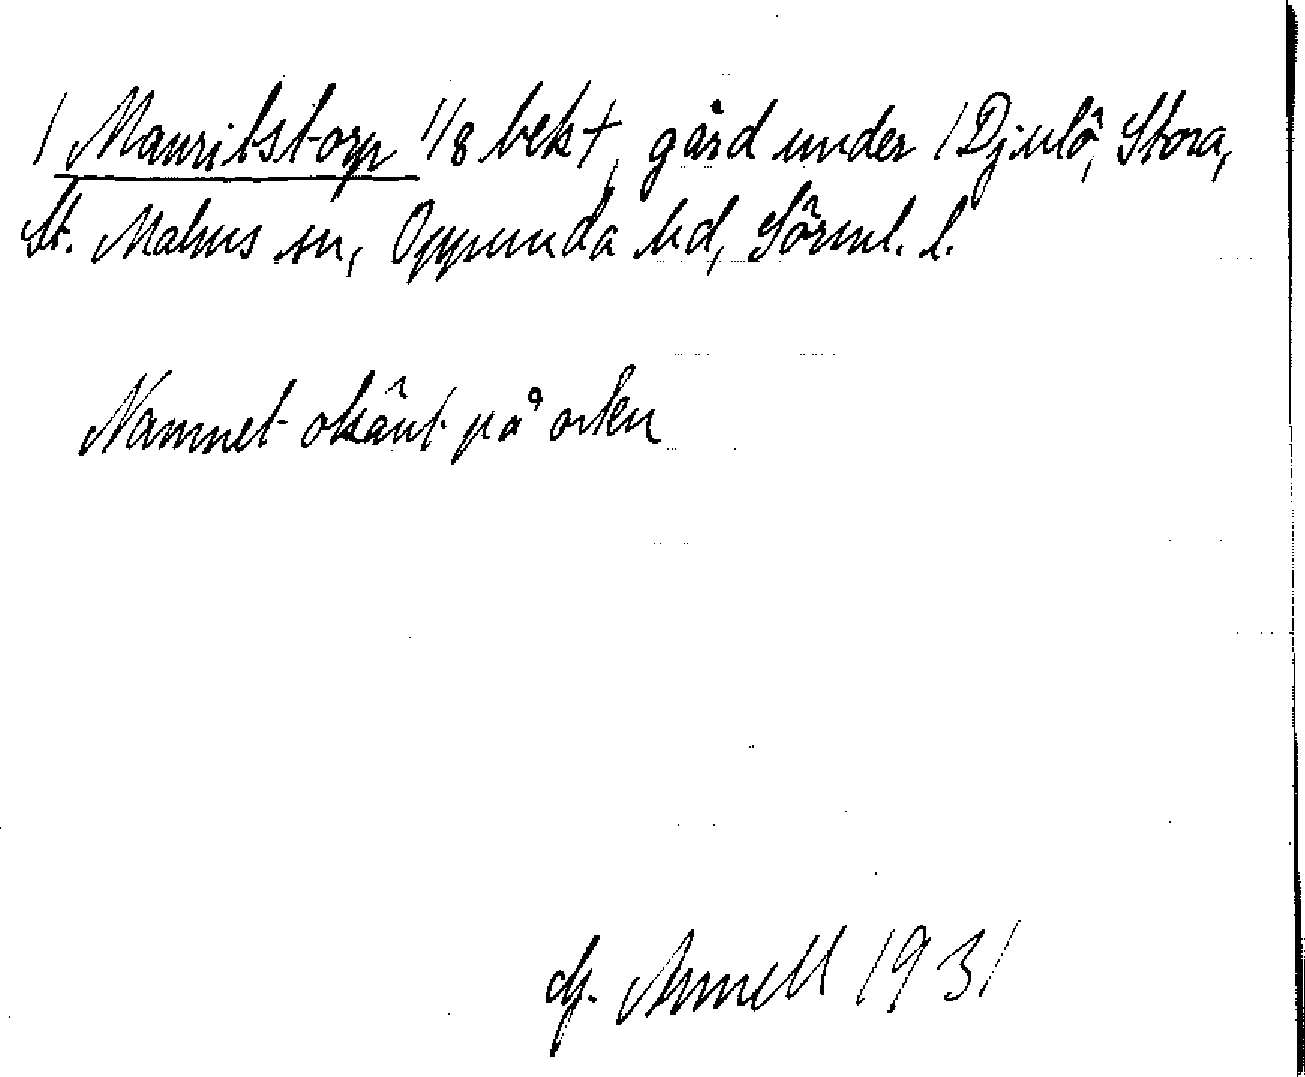 / Mauritstorp 1/8 bekt, gård under / Djulö, Stora,
St. Malms sn, Oppunda hd, Sörml. l.
Namnet okänt på orten
Annell 1931